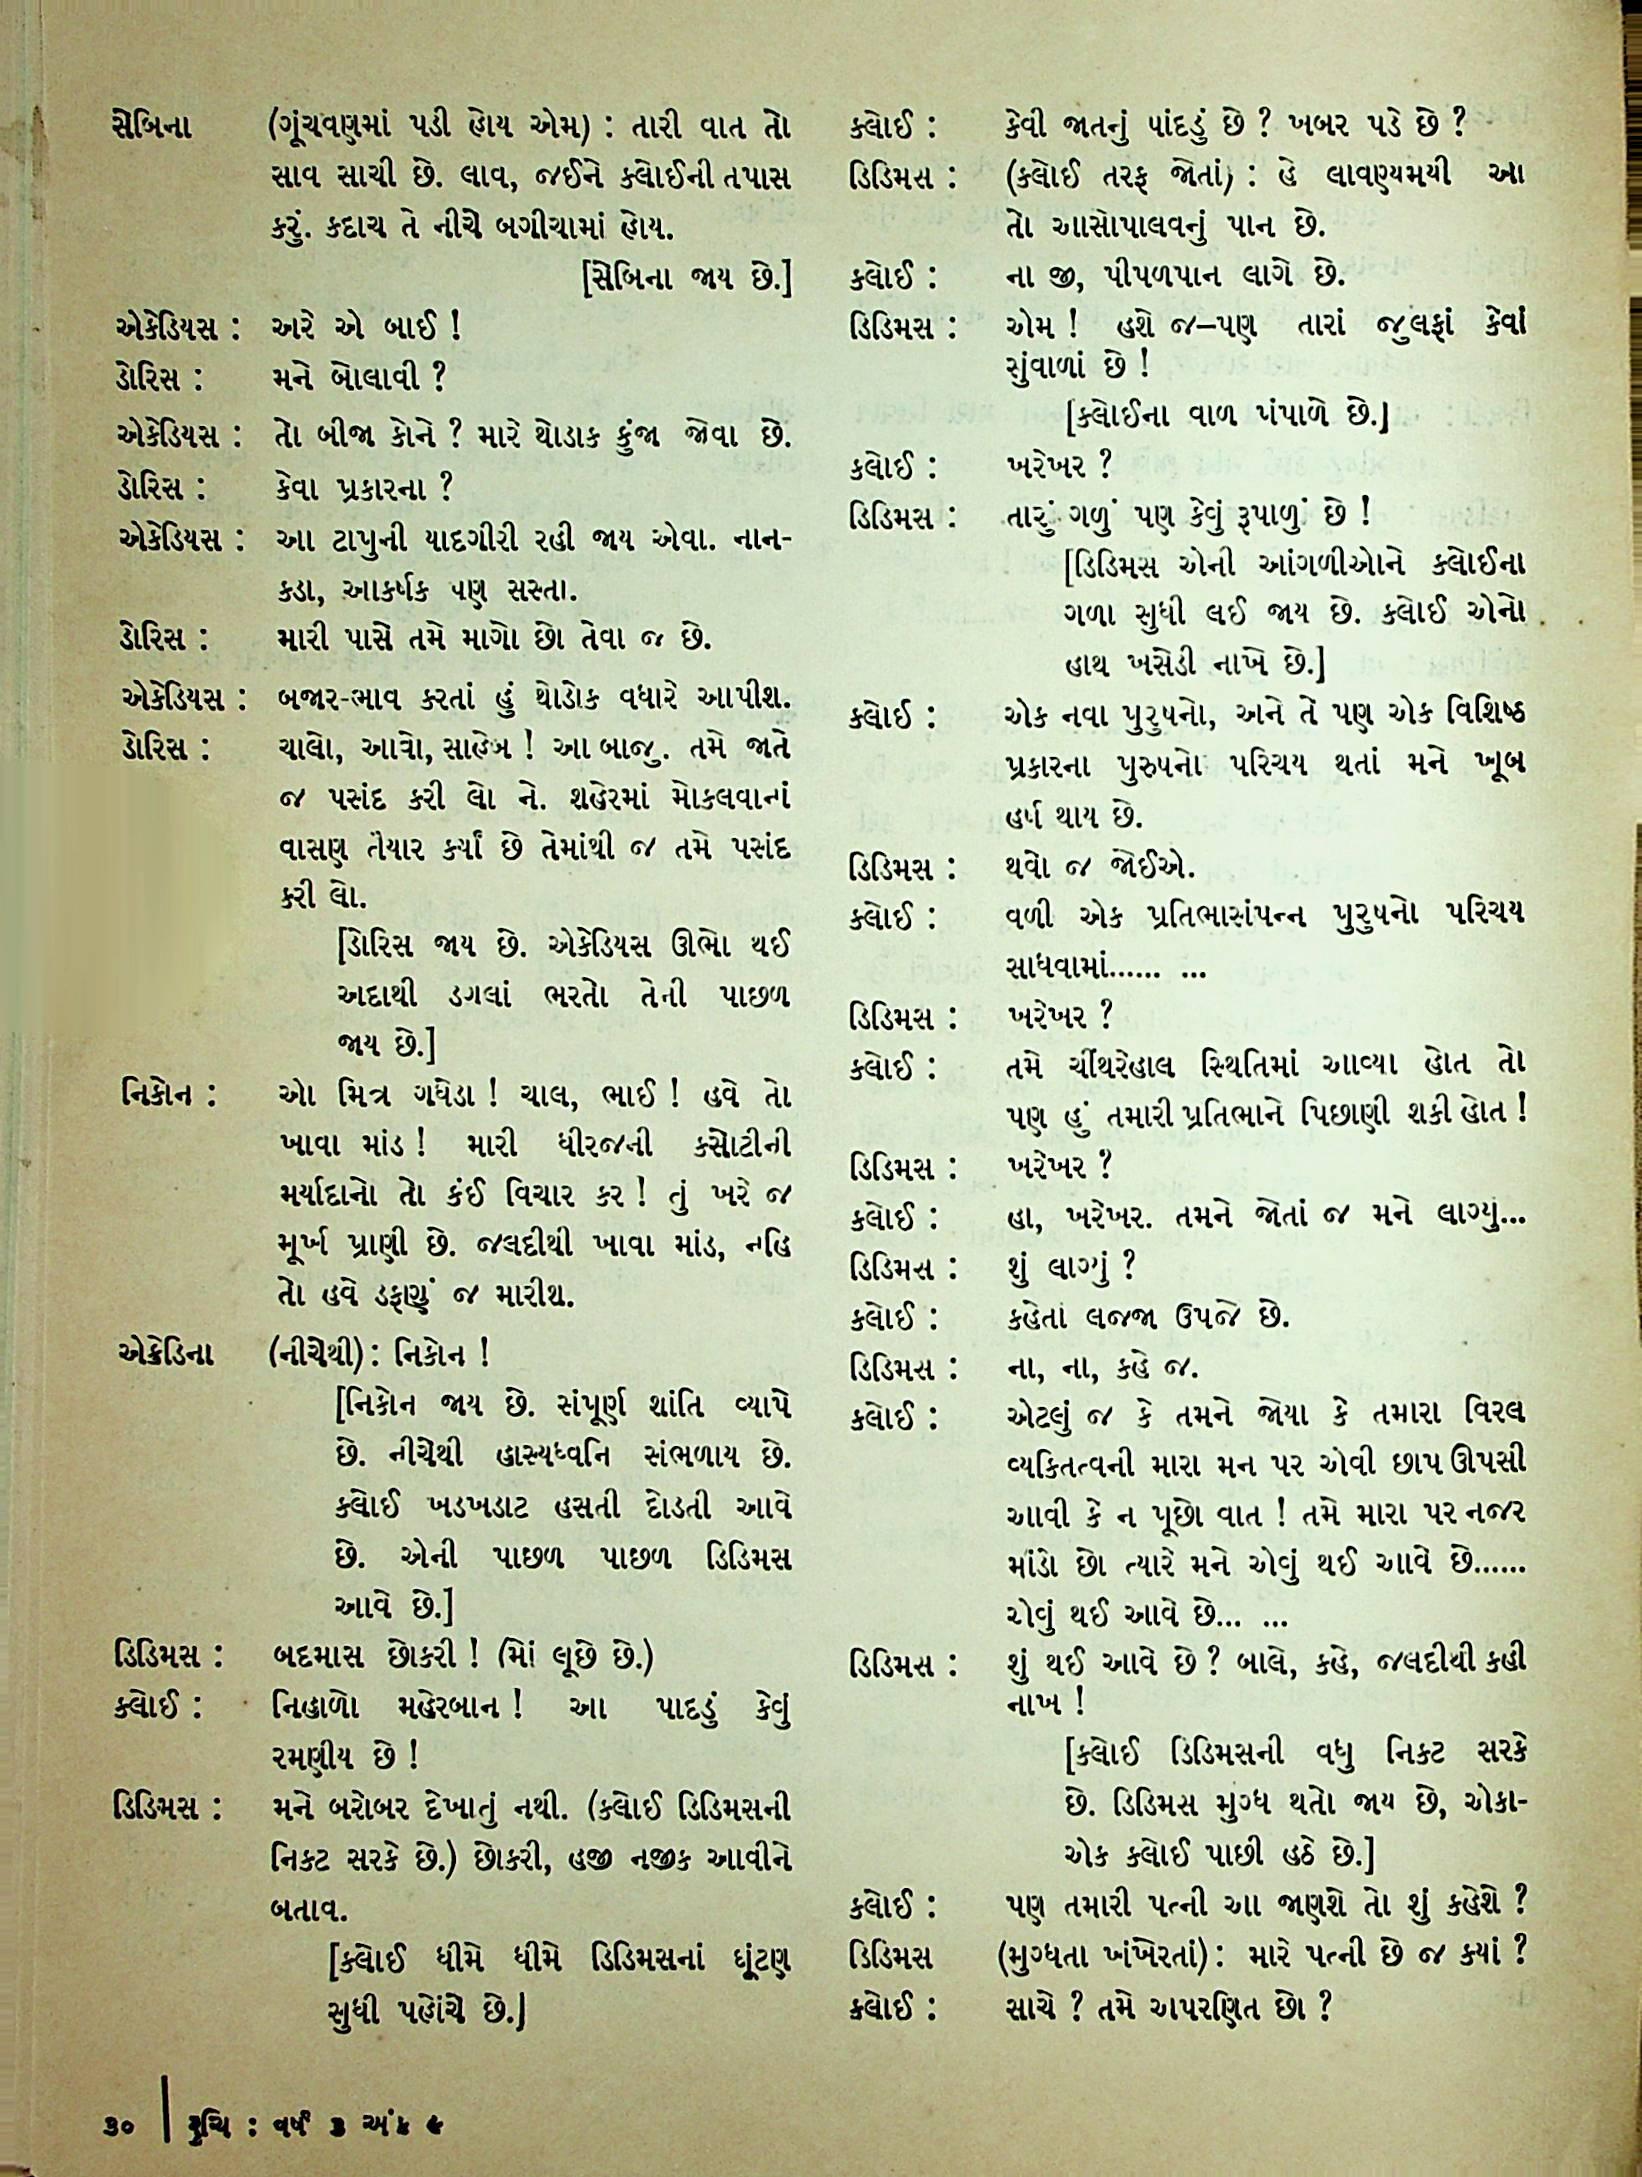 સેબિના (ગૂંચવણમાં પડી હોય એમ) : તારી વાત તો
સાવ સાચી છે. લાવ, જઈને ક્લોઈની તપાસ
કરું. કદાચ તે નીચે બગીચામાં હોય.
[સેબિના જાય છે.]
એકેડિયસ : અરે એ બાઈ !
ડોરિસ : મને બોલાવી ?
એકેડિયસ : તો બીજા કોને ? મારે થોડાક કુંજા જોવા છે.
ડોરિસ : કેવા પ્રકારના ?
એકેડિયસ : આ ટાપુની યાદગીરી રહી જાય એવા. નાન-
કડા, આકર્ષક પણ સસ્તા.
ડોરિસ : મારી પાસે તમે માગો છો તેવા જ છે.
એકેડિયસ : બજાર-ભાવ કરતાં હું થોડોક વધારે આપીશ.
ડોરિસ : ચાલો, આવો, સાહેબ ! આ બાજુ. તમે જાતે
જ પસંદ કરી લો ને. શહેરમાં મોકલવાનાં
વાસણ તૈયાર કર્યાં છે તેમાંથી જ તમે પસંદ
કરી લો.
[ડોરિસ જાય છે. એકેડિયસ ઊભો થઈ
અદાથી ડગલાં ભરતો તેની પાછળ
જાય છે.]
નિકોન : ઓ મિત્ર ગધેડા ! ચાલ, ભાઈ ! હવે તો
ખાવા માંડ ! મારી ધીરજની કસોટીની
મર્યાદાનો તો કંઈ વિચાર કર ! તું ખરે જ
મૂર્ખ પ્રાણી છે. જલદીથી ખાવા માંડ, નહિ
તો હવે ડફણું જ મારીશ.
એક્રેડિના (નીચેથી) : નિકોન !
[નિકોન જાય છે. સંપૂર્ણ શાંતિ વ્યાપે
છે. નીચેથી હાસ્યધ્વનિ સંભળાય છે.
ક્લોઈ ખડખડાટ હસતી દોડતી આવે
છે. એની પાછળ પાછળ ડિડિમસ
આવે છે.]
ડિડિમસ : બદમાસ છોકરી ! (મોં લૂછે છે.)
ક્લોઈ : નિહાળો મહેરબાન ! આ પાદડું કેવું
રમણીય છે !
ડિડિમસ : મને બરોબર દેખાતું નથી. (ક્લોઈ ડિડિમસની
નિકટ સરકે છે.) છોકરી, હજી નજીક આવીને
બતાવ.
[ક્લોઈ ધીમે ધીમે ડિડિમસનાં ઘૂંટણ
સુધી પહોંચે છે.]
ક્લોઈ : કેવી જાતનું પાંદડું છે ? ખબર પડે છે ?
ડિડિમસ : (ક્લોઈ તરફ જોતાં) : હે લાવણ્યમયી આ
તો આસોપાલવનું પાન છે.
ક્લોઈ : ના જી, પીપળપાન લાગે છે.
ડિડિમસ : એમ ! હશે જ–પણ તારાં જુલફાં કેવાં
સુંવાળાં છે !
[ક્લોઈના વાળ પંપાળે છે.]
ક્લોઈ : ખરેખર ?
ડિડિમસ : તારું ગળું પણ કેવું રૂપાળું છે !
[ડિડિમસ એની આંગળીઓને ક્લોઈના
ગળા સુધી લઈ જાય છે. ક્લોઈ એનો
હાથ ખસેડી નાખે છે.]
ક્લોઈ : એક નવા પુરુષનો, અને તે પણ એક વિશિષ્ઠ
પ્રકારના પુરુષનો પરિચય થતાં મને ખૂબ
હર્ષ થાય છે.
ડિડિમસ : થવો જ જોઈએ.
ક્લોઈ : વળી એક પ્રતિભાસંપન્ન પુરુષનો પરિચય
સાધવામાં...... ...
ડિડિમસ : ખરેખર ?
ક્લોઈ : તમે ચીંથરેહાલ સ્થિતિમાં આવ્યા હોત તો
પણ હું તમારી પ્રતિભાને પિછાણી શકી હોત !
ડિડિમસ : ખરેખર ?
ક્લોઈ : હા, ખરેખર. તમને જોતાં જ મને લાગ્યું...
ડિડિમસ : શું લાગ્યું ?
ક્લોઈ : કહેતાં લજ્જા ઉપજે છે.
ડિડિમસ : ના, ના, કહે જ.
ક્લોઈ : એટલું જ કે તમને જોયા કે તમારા વિરલ
વ્યક્તિત્વની મારા મન પર એવી છાપ ઊપસી
આવી કે ન પૂછો વાત ! તમે મારા પર નજર
માંડો છો ત્યારે મને એવું થઈ આવે છે......
એવું થઈ આવે છે... ...
ડિડિમસ : શું થઈ આવે છે ? બાલે, કહે, જલદીથી કહી
નાખ !
[ક્લોઈ ડિડિમસની વધુ નિકટ સરકે
છે. ડિડિમસ મુગ્ધ થતો જાય છે, એકા-
એક ક્લોઈ પાછી હઠે છે.]
ક્લોઈ : પણ તમારી પત્ની આ જાણશે તો શું કહેશે ?
ડિડિમસ (મુગ્ધતા ખંખેરતાં) : મારે પત્ની છે જ ક્યાં ?
ક્લોઈ : સાચે ? તમે અપરણિત છો ?
૩૦ | રુચિ : વર્ષ ૩ અંક ૯